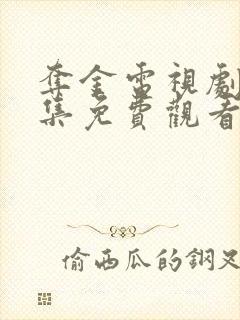 奪金電視劇
集免費觀看
偷西瓜的鋼叉